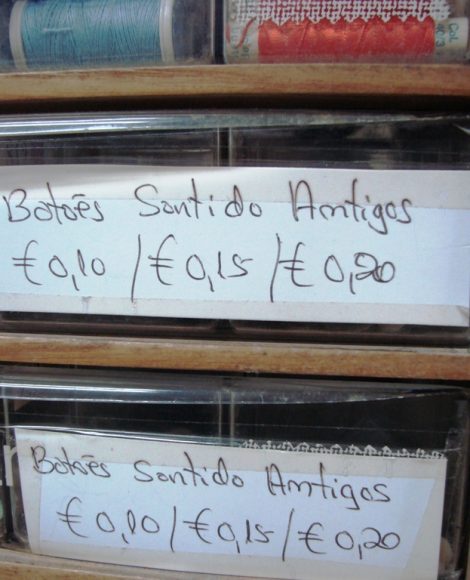 Botoēs Sontido Amtigos
€ 0,10 / € 0,15 / € 0,20
Botoēs Sontido Amtigos
€ 0,10 / € 0,15 / € 0,20